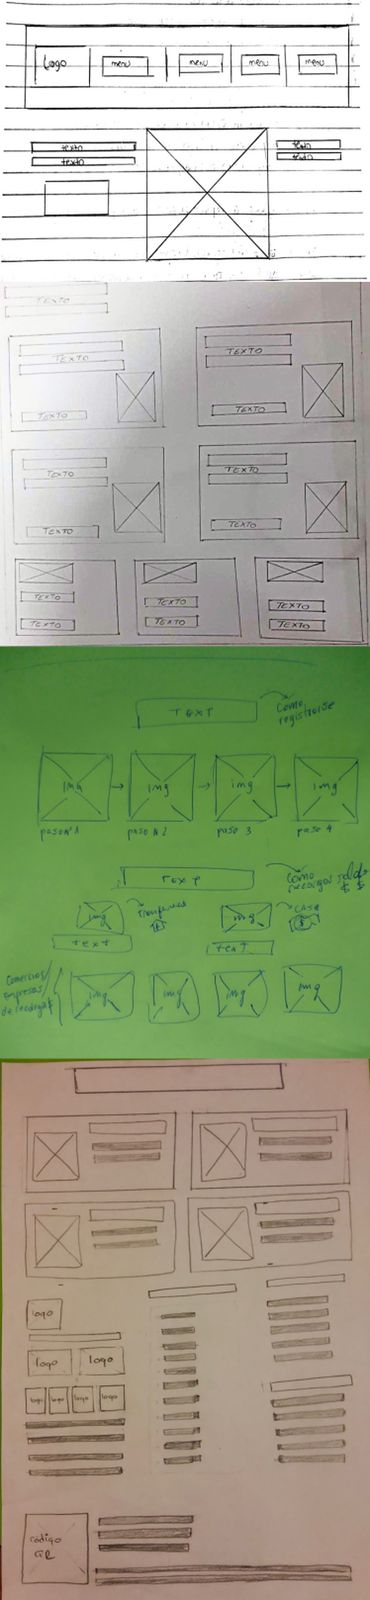 Logo menu menu menu menu
texto texto
texto texto
TEXTO
TEXTO TEXTO
TEXTO TEXTO
TEXTO TEXTO
TEXTO TEXTO
TEXTO TEXTO TEXTO
TEXTO TEXTO TEXTO
TEXT Como
registrarse
img img img img
paso Nº1 paso N2 paso 3 paso 4
TEXT Como
recargar saldo
$ $
img img casa
$ $
text text
Comercios/
empresas
de recargas
img img img img
logo
logo logo
logo logo logo logo
codigo
QR